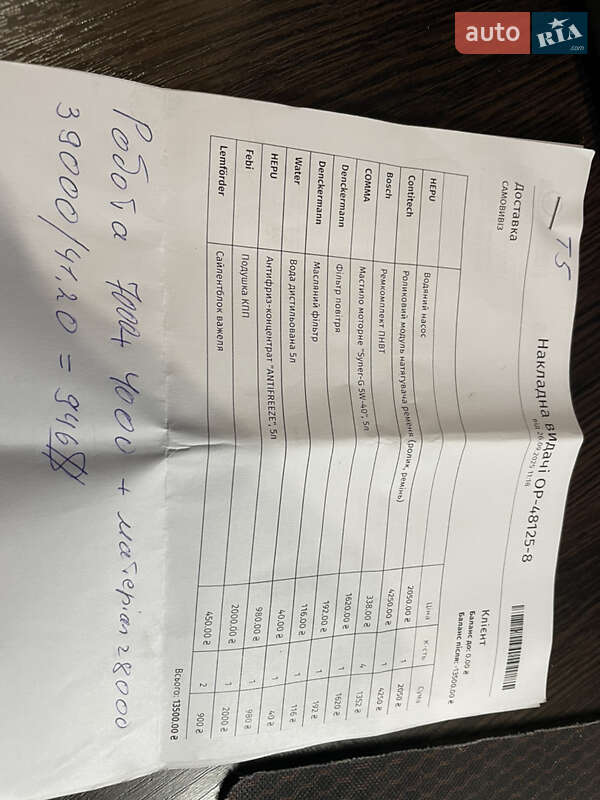 auto RIA .com
T5
Доставка
САМОВИВІЗ
Накладна видачі ОР-48125-8
від 26.09.2025 11:16
Клієнт
Баланс до: 0.00 ₴
Баланс після: -13500.00 ₴
Ціна К-сть Сума
HEPU Водяний насос 2050.00 ₴ 1 2050 ₴
Contitech Роликовий модуль натягувача ременя (ролик, ремінь) 4250.00 ₴ 1 4250 ₴
Bosch Ремкомплект ПНВТ 338.00 ₴ 4 1352 ₴
COMMA Мастило моторне "Syner-G 5W-40", 5л 1620.00 ₴ 1 1620 ₴
Denckermann Фільтр повітря 192.00 ₴ 1 192 ₴
Denckermann Масляний фільтр 116.00 ₴ 1 116 ₴
Water Вода дистильована 5л 40.00 ₴ 1 40 ₴
HEPU Антифриз-концентрат "ANTIFREEZE", 5л 980.00 ₴ 1 980 ₴
Febi Подушка КПП 2000.00 ₴ 1 2000 ₴
Lemförder Сайлентблок важеля 450.00 ₴ 2 900 ₴
Всього: 13500.00 ₴
Робота 4000 + матеріал 28000
39000/41.20 = 946$